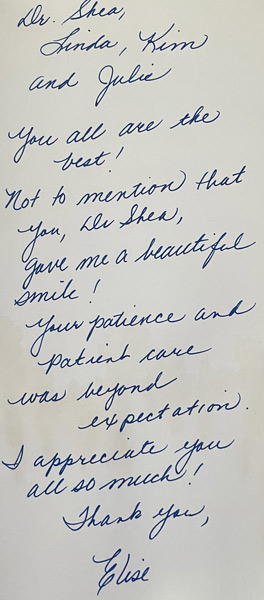 Dr. Shea,
Linda, Kim
and Julie
You all are the
best!
Not to mention that
you, Dr Shea,
gave me a beautiful
smile!
Your patience and
patient care
was beyond
expectation.
I appreciate you
all so much!
Thank you,
Elise